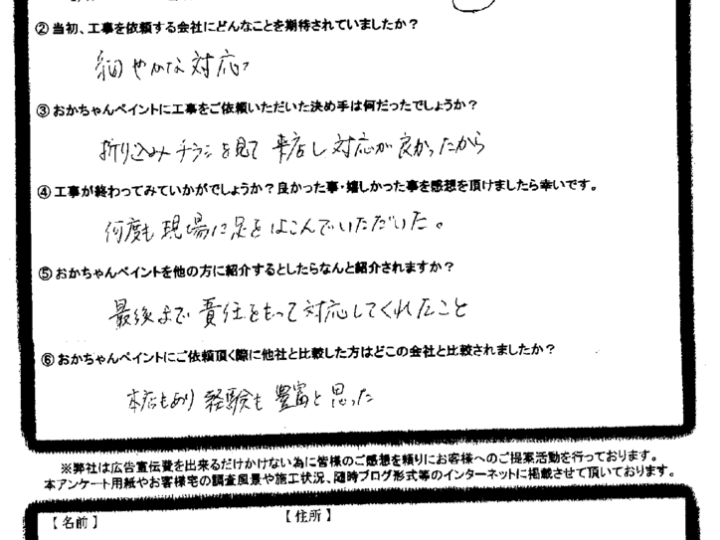 ②当初、工事を依頼する会社にどんなことを期待されていましたか？
細やかな対応
③おかちゃんペイントに工事をご依頼いただいた決め手は何だったでしょうか？
折り込みチラシを見て来店し対応が良かったから
④工事が終わってみていかがでしょうか？良かった事・嬉しかった事を感想を頂けましたら幸いです。
何度も現場に足をはこんでいただいた。
⑤おかちゃんペイントを他の方に紹介するとしたらなんと紹介されますか？
最後まで責任をもって対応してくれたこと
⑥おかちゃんペイントにご依頼頂く際に他社と比較した方はどこの会社と比較されましたか？
本店もあり経験も豊富と思った
※弊社は広告宣伝費を出来るだけかけない為に皆様のご感想を頼りにお客様へのご提案活動を行っております。
本アンケート用紙やお客様宅の調査風景や施工状況、随時ブログ形式等のインターネットに掲載させて頂いております。
【名前】 【住所】